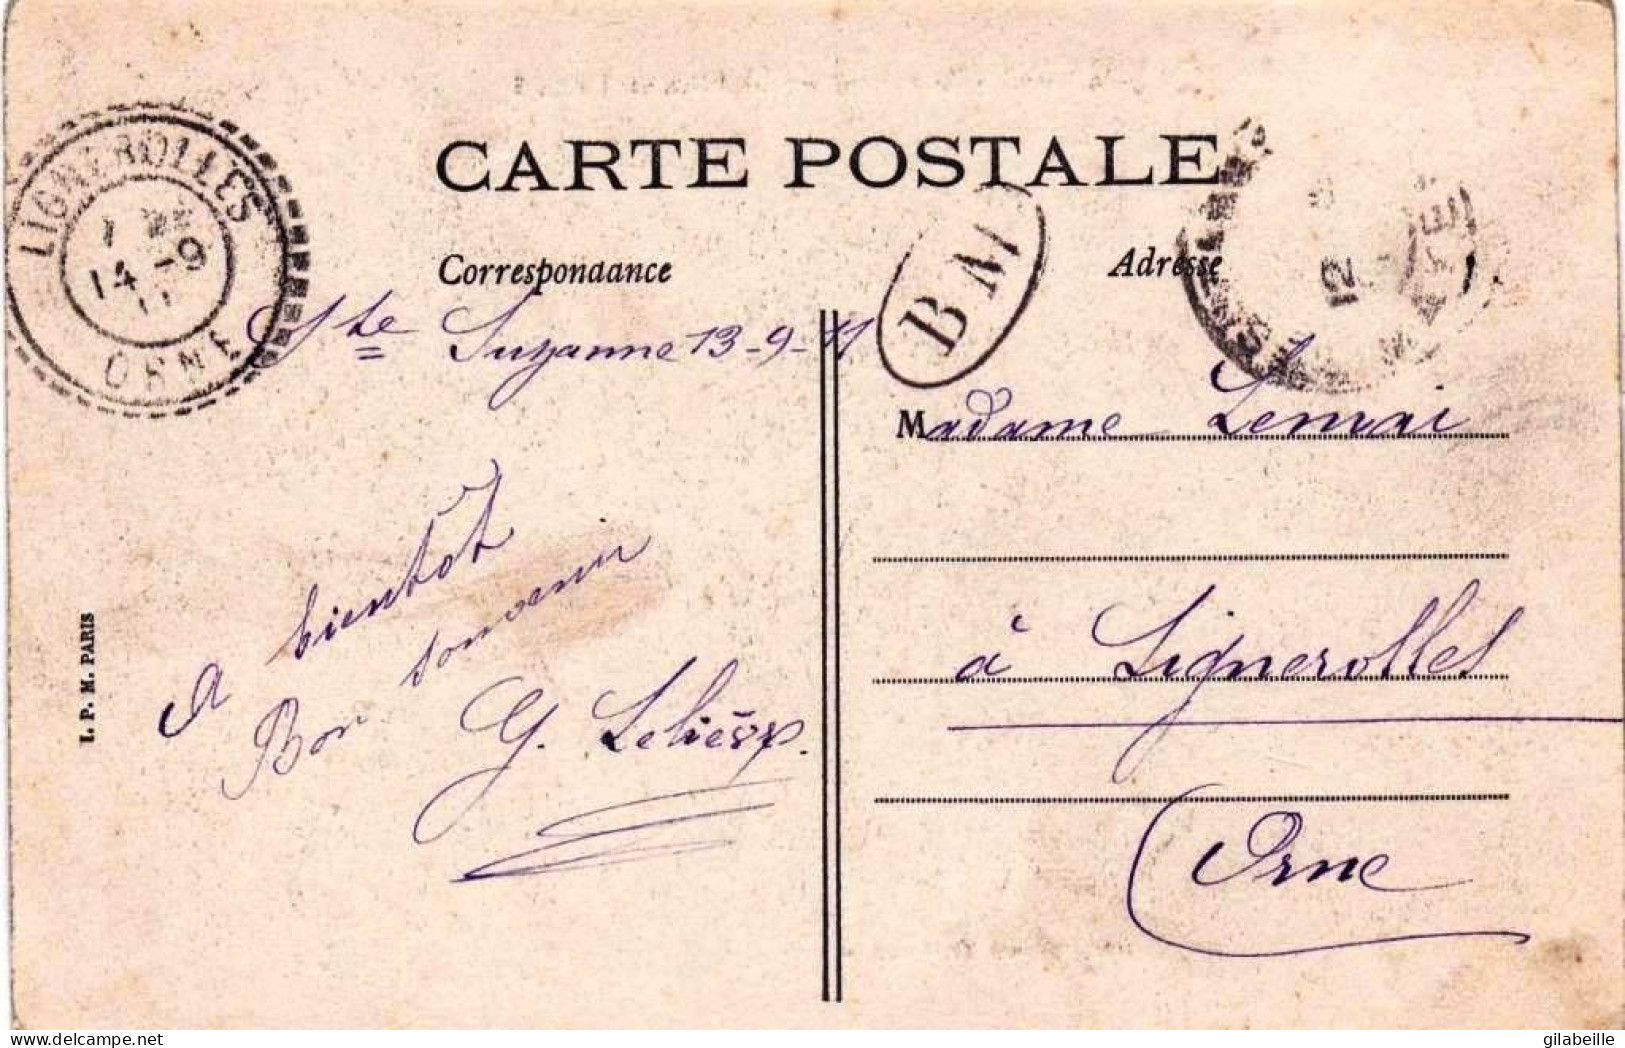 CARTE POSTALE
Correspondance
Adresse
LIGNEROLLES
14 9
11
ORNE
BM
12
Ste Suzanne 13-9-11
Madame
à Lignerolles
Orne
A bientôt
Bon souvenir
G.
I. P. M. PARIS
delcampe.net
gilabeille